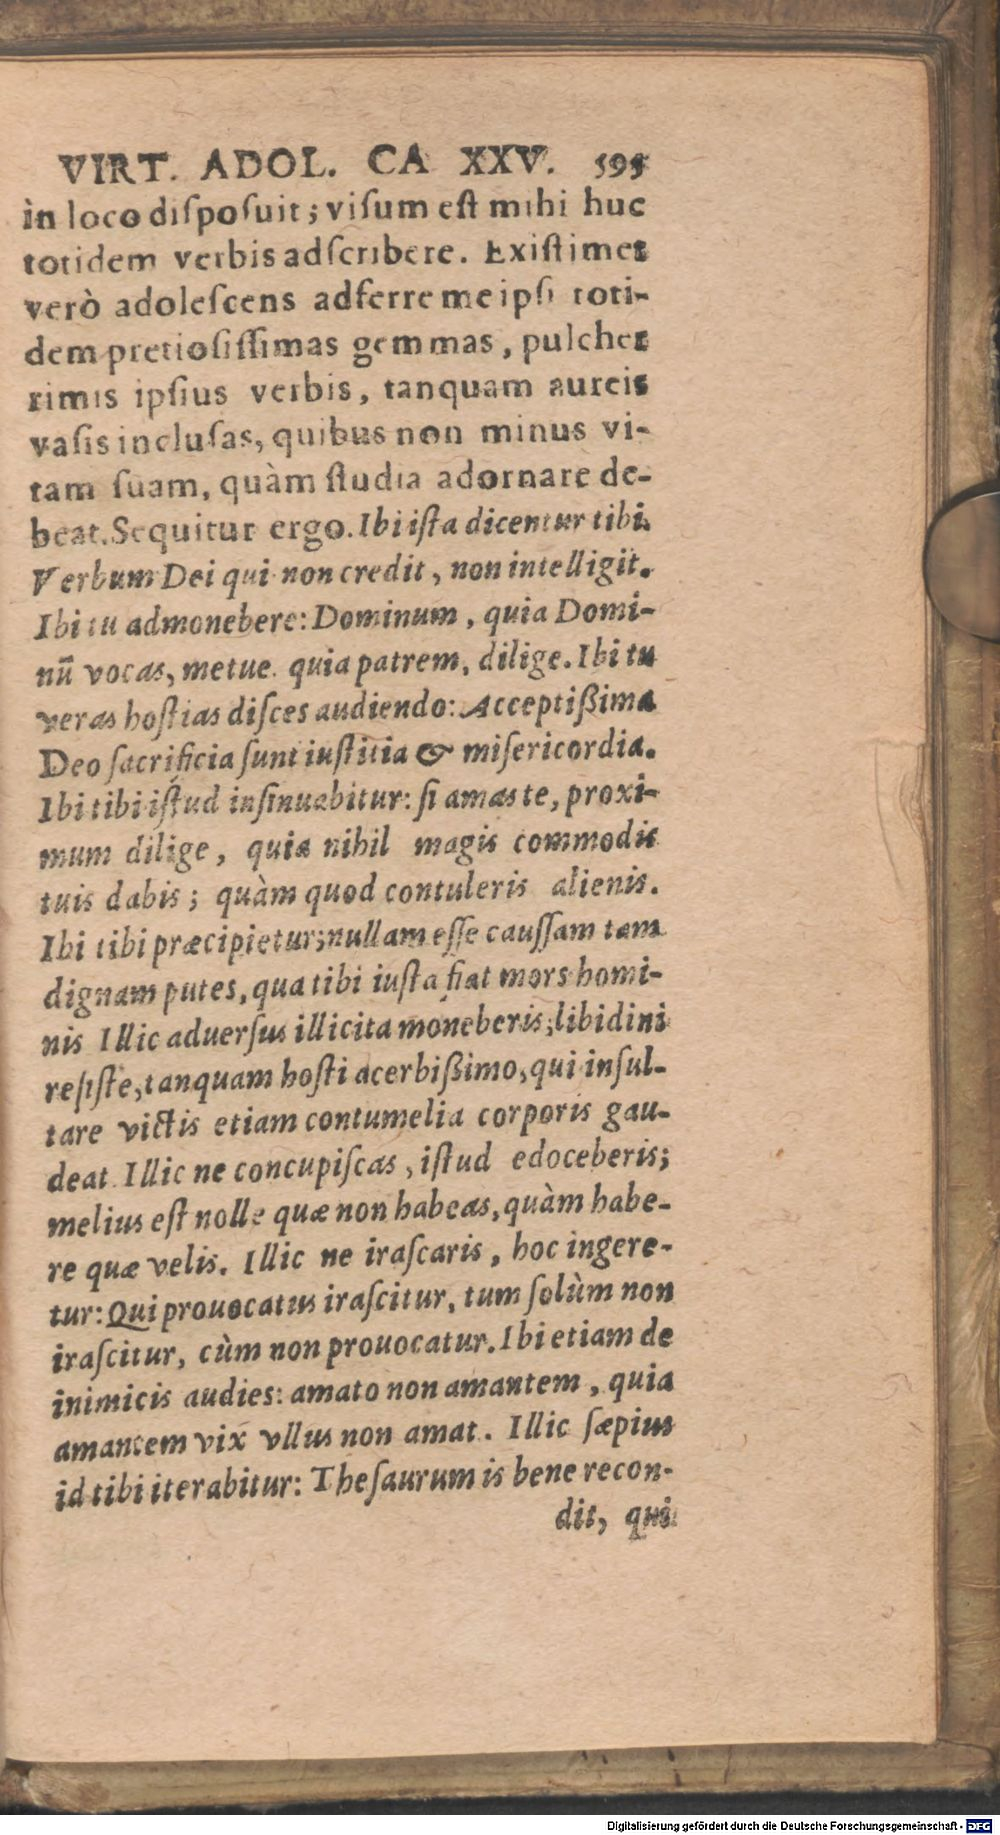 VIRT. ADOL. CA XXV. 595
in loco diſpoſuit; viſum eſt mihi huc
totidem verbis adſcribere. Exiſtimet
verò adoleſcens adferre me ipſi toti-
dem pretioſiſſimas gemmas, pulcher
rimis ipſius verbis, tanquam aureis
vaſis incluſas, quibus non minus vi-
tam ſuam, quàm ſtudia adornare de-
beat. Sequitur ergo. Ibi iſta dicentur tibi.
Verbum Dei qui non credit, non intelligit.
Ibi tu admonebere: Dominum, quia Domi-
nū vocas, metue. quia patrem, dilige. Ibi tu
veras hoſtias diſces audiendo: Acceptißima
Deo ſacrificia ſunt iuſtitia & miſericordia.
Ibi tibi iſtud inſinuabitur: ſi amas te, proxi-
mum dilige, quia nihil magis commodis
tuis dabis; quàm quod contuleris alienis.
Ibi tibi præcipietur; nullam eſſe cauſſam tam
dignam putes, qua tibi iuſta fiat mors homi-
nis Illic aduerſus illicita moneberis; libidini
reſiſte, tanquam hoſti acerbißimo, qui inſul-
tare victis etiam contumelia corporis gau-
deat. Illic ne concupiſcas, iſtud edoceberis;
melius eſt nolle quæ non habeas, quàm habe-
re quæ velis. Illic ne iraſcaris, hoc ingere-
tur: Qui prouocatus iraſcitur, tum ſolùm non
iraſcitur, cùm non prouocatur. Ibi etiam de
inimicis audies: amato non amantem, quia
amantem vix vllus non amat. Illic ſæpius
id tibi iterabitur: Theſaurum is bene recon-
dit, qui
Digitalisierung gefördert durch die Deutsche Forschungsgemeinschaft - DFG